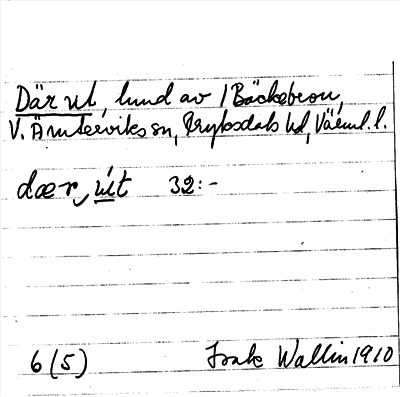 Där ut, lund av 1 Bäckebron,
V. Ämterviks sn, Fryksdals hd, Värml. l.
dær ut 32:-
6 (5) Wallin 1910